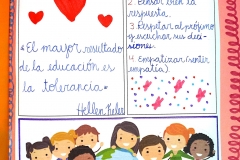 «El mayor resultado
de la educación es
la tolerancia»
Hellen Keler
2. Pensar bien la
respuesta.
3. Respetar al prójimo
y escuchar sus deci-
siones.
4. Empatizar (sentir
empatía)